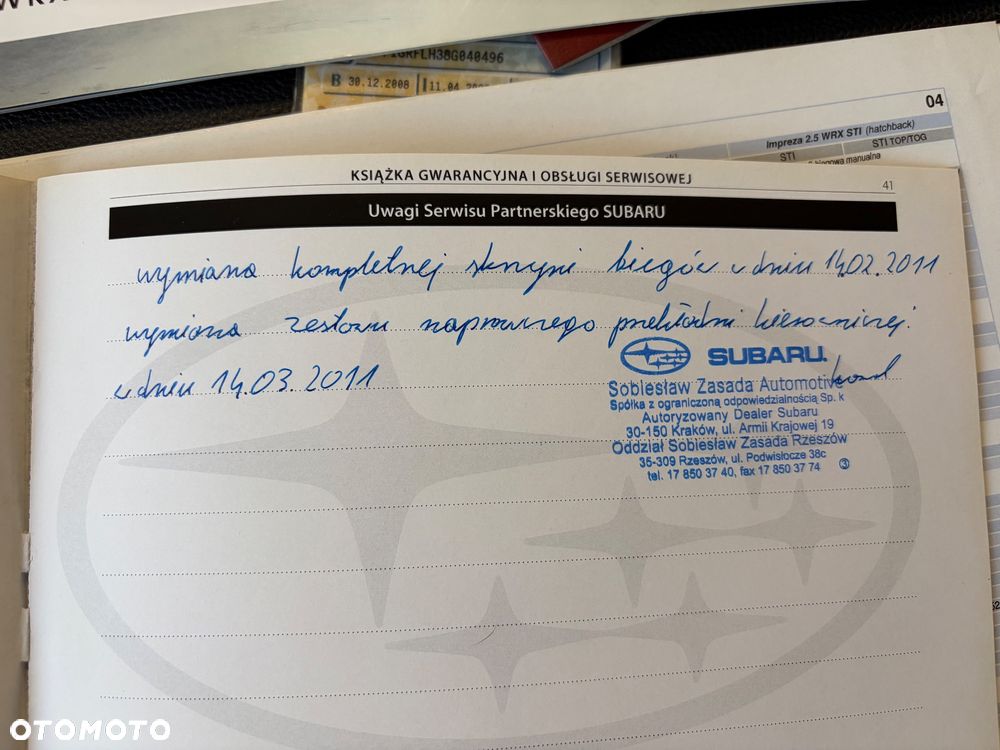 1GRFLH38G040496
B 30.12.2008
11.04
04
Impreza 2.5 WRX STI (hatchback)
STI STI TOP/TOG
biegowa manualna
KSIĄŻKA GWARANCYJNA I OBSŁUGI SERWISOWEJ
41
Uwagi Serwisu Partnerskiego SUBARU
wymiana kompletnej skrzyni biegów w dniu 14.02.2011
wymiana zestawu naprawczego przekładni kierowniczej.
w dniu 14.03.2011
SUBARU.
Sobiesław Zasada Automotive
Spółka z ograniczoną odpowiedzialnością Sp. k
Autoryzowany Dealer Subaru
30-150 Kraków, ul. Armii Krajowej 19
Oddział Sobiesław Zasada Rzeszów
35-309 Rzeszów, ul. Podwisłocze 38c
tel. 17 850 37 40, fax 17 850 37 74
OTOMOTO